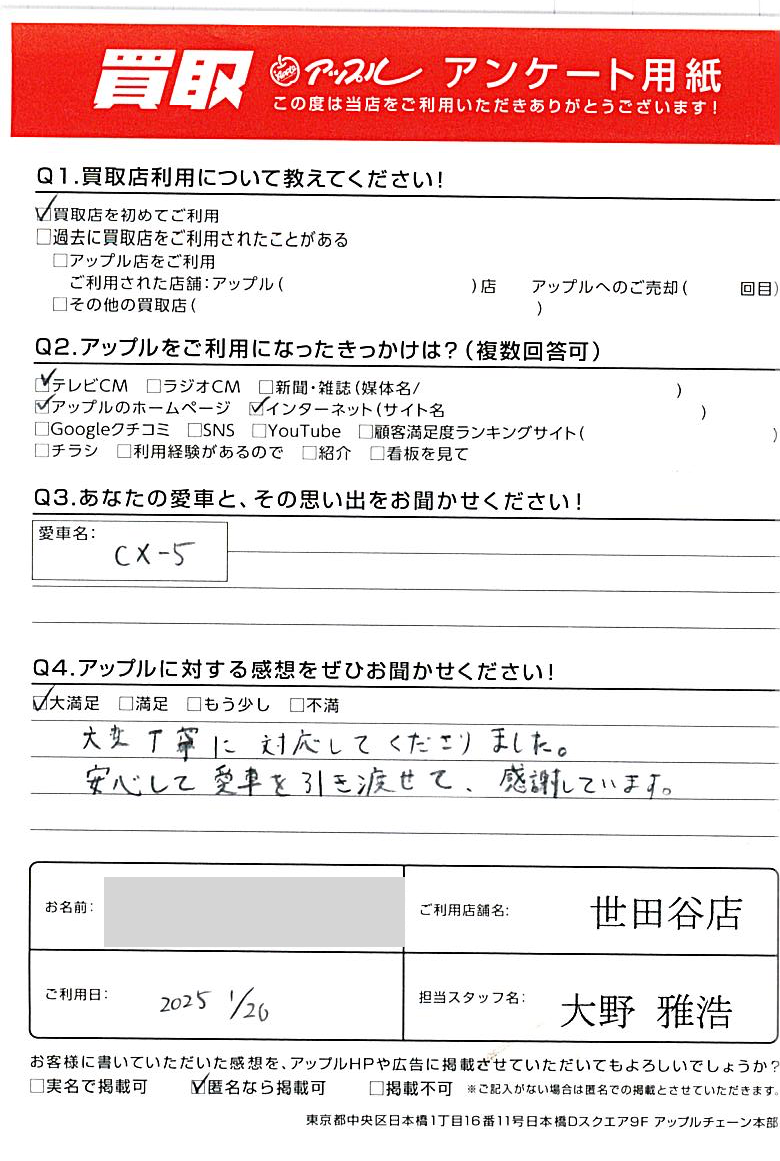 買取 アップル アンケート用紙
この度は当店をご利用いただきありがとうございます!
Q1.買取店利用について教えてください!
☑買取店を初めてご利用
□過去に買取店をご利用されたことがある
□アップル店をご利用
ご利用された店舗:アップル( )店 アップルへのご売却( 回目)
□その他の買取店( )
Q2.アップルをご利用になったきっかけは?(複数回答可)
☑テレビCM □ラジオCM □新聞・雑誌(媒体名/ )
☑アップルのホームページ ☑インターネット(サイト名 )
□Googleクチコミ □SNS □YouTube □顧客満足度ランキングサイト( )
□チラシ □利用経験があるので □紹介 □看板を見て
Q3.あなたの愛車と、その思い出をお聞かせください!
愛車名:
CX-5
Q4.アップルに対する感想をぜひお聞かせください!
☑大満足 □満足 □もう少し □不満
大変丁寧に対応してくださりました。
安心して愛車を引き渡せて、感謝しています。
お名前: ご利用店舗名: 世田谷店
ご利用日: 2025 1/26 担当スタッフ名: 大野 雅浩
お客様に書いていただいた感想を、アップルHPや広告に掲載させていただいてもよろしいでしょうか?
□実名で掲載可 ☑匿名なら掲載可 □掲載不可 ※ご記入がない場合は匿名での掲載とさせていただきます。
東京都中央区日本橋1丁目16番11号日本橋Dスクエア9F アップルチェーン本部